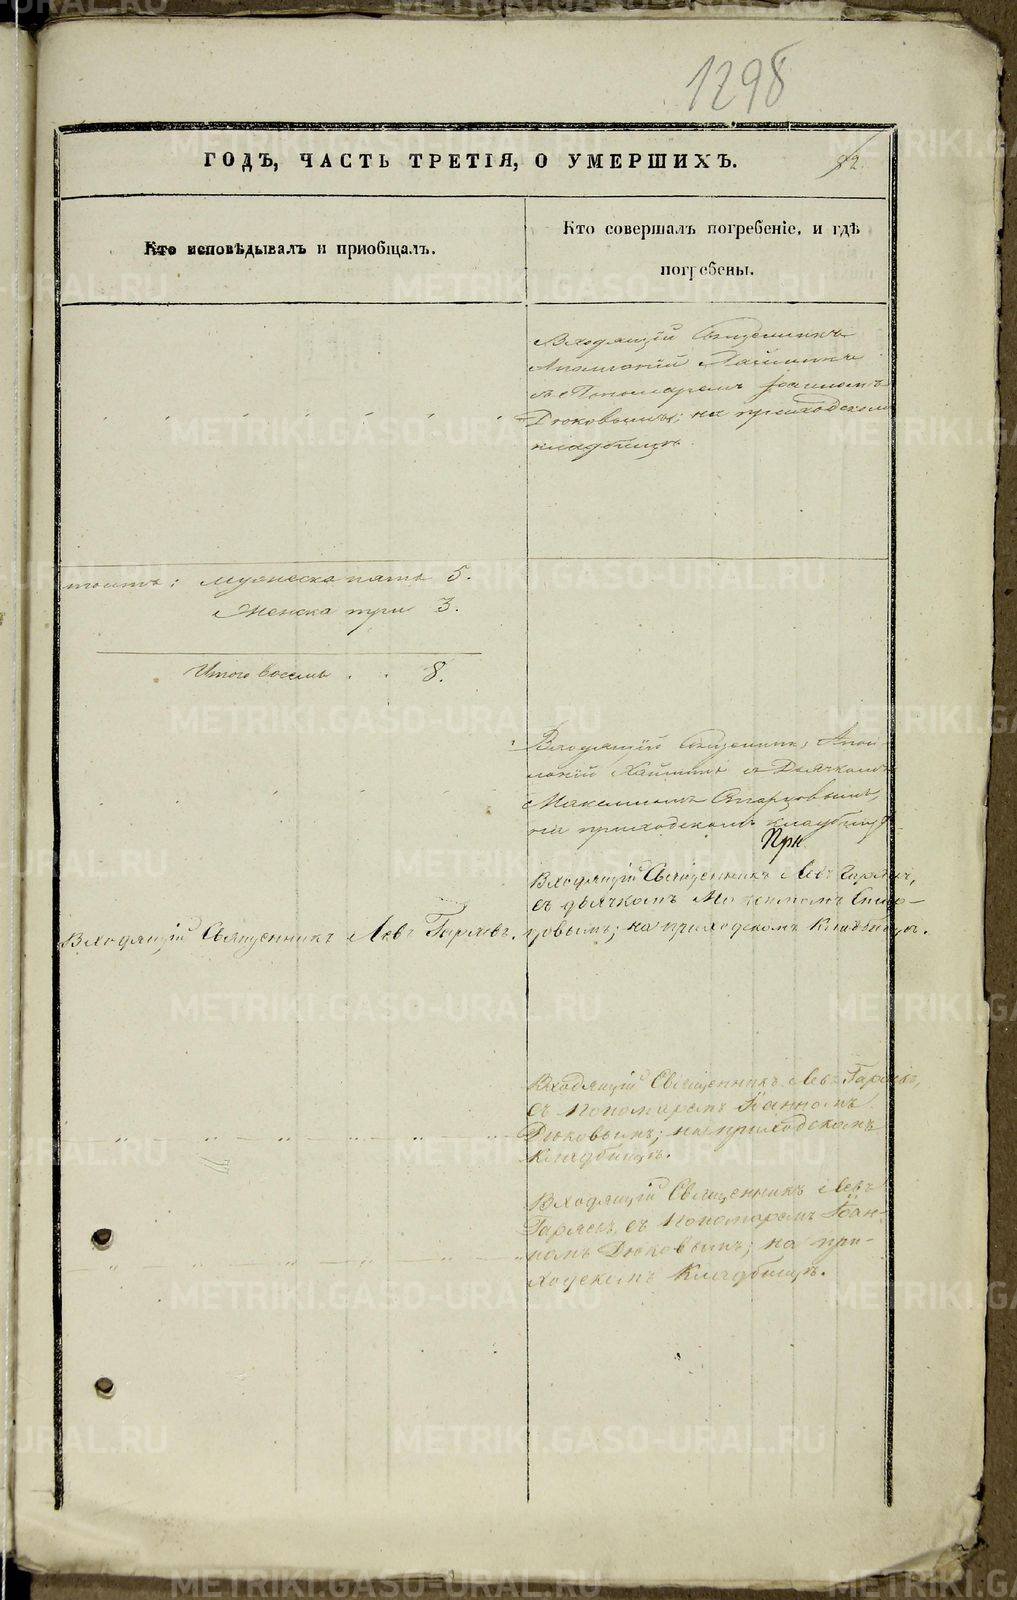 1298
ГОДЪ, ЧАСТЬ ТРЕТІЯ, О УМЕРШИХЪ.
Кто исповѣдывалъ и приобщалъ.
Кто совершалъ погребеніе, и гдѣ
погребены.
Входящій Священникъ
Хайминъ
съ Пономаремъ Іоанномъ
Дюковымъ; на приходскомъ
кладбищѣ.
Мужеска пять 5.
Женска три 3.
Итого восемь . . 8.
Входящій Священникъ
Хайминъ съ Дьячкомъ
Максимомъ Старцовымъ,
на приходскомъ кладбищѣ.
При
Входящій Священникъ Левъ Гаряевъ,
съ дьячкомъ Максимомъ Стар-
Входящій Священникъ Левъ Гаряевъ.
цовымъ; на приходскомъ Кладбищѣ.
Входящій Священникъ Левъ Гаряевъ,
съ Пономаремъ Іоанномъ
Дюковымъ; на приходскомъ
Кладбищѣ.
Входящій Священникъ Левъ
Гаряевъ, съ Пономаремъ Іоан-
номъ Дюковымъ; на при-
ходскомъ Кладбищѣ.
METRIKI.GASO-URAL.RU